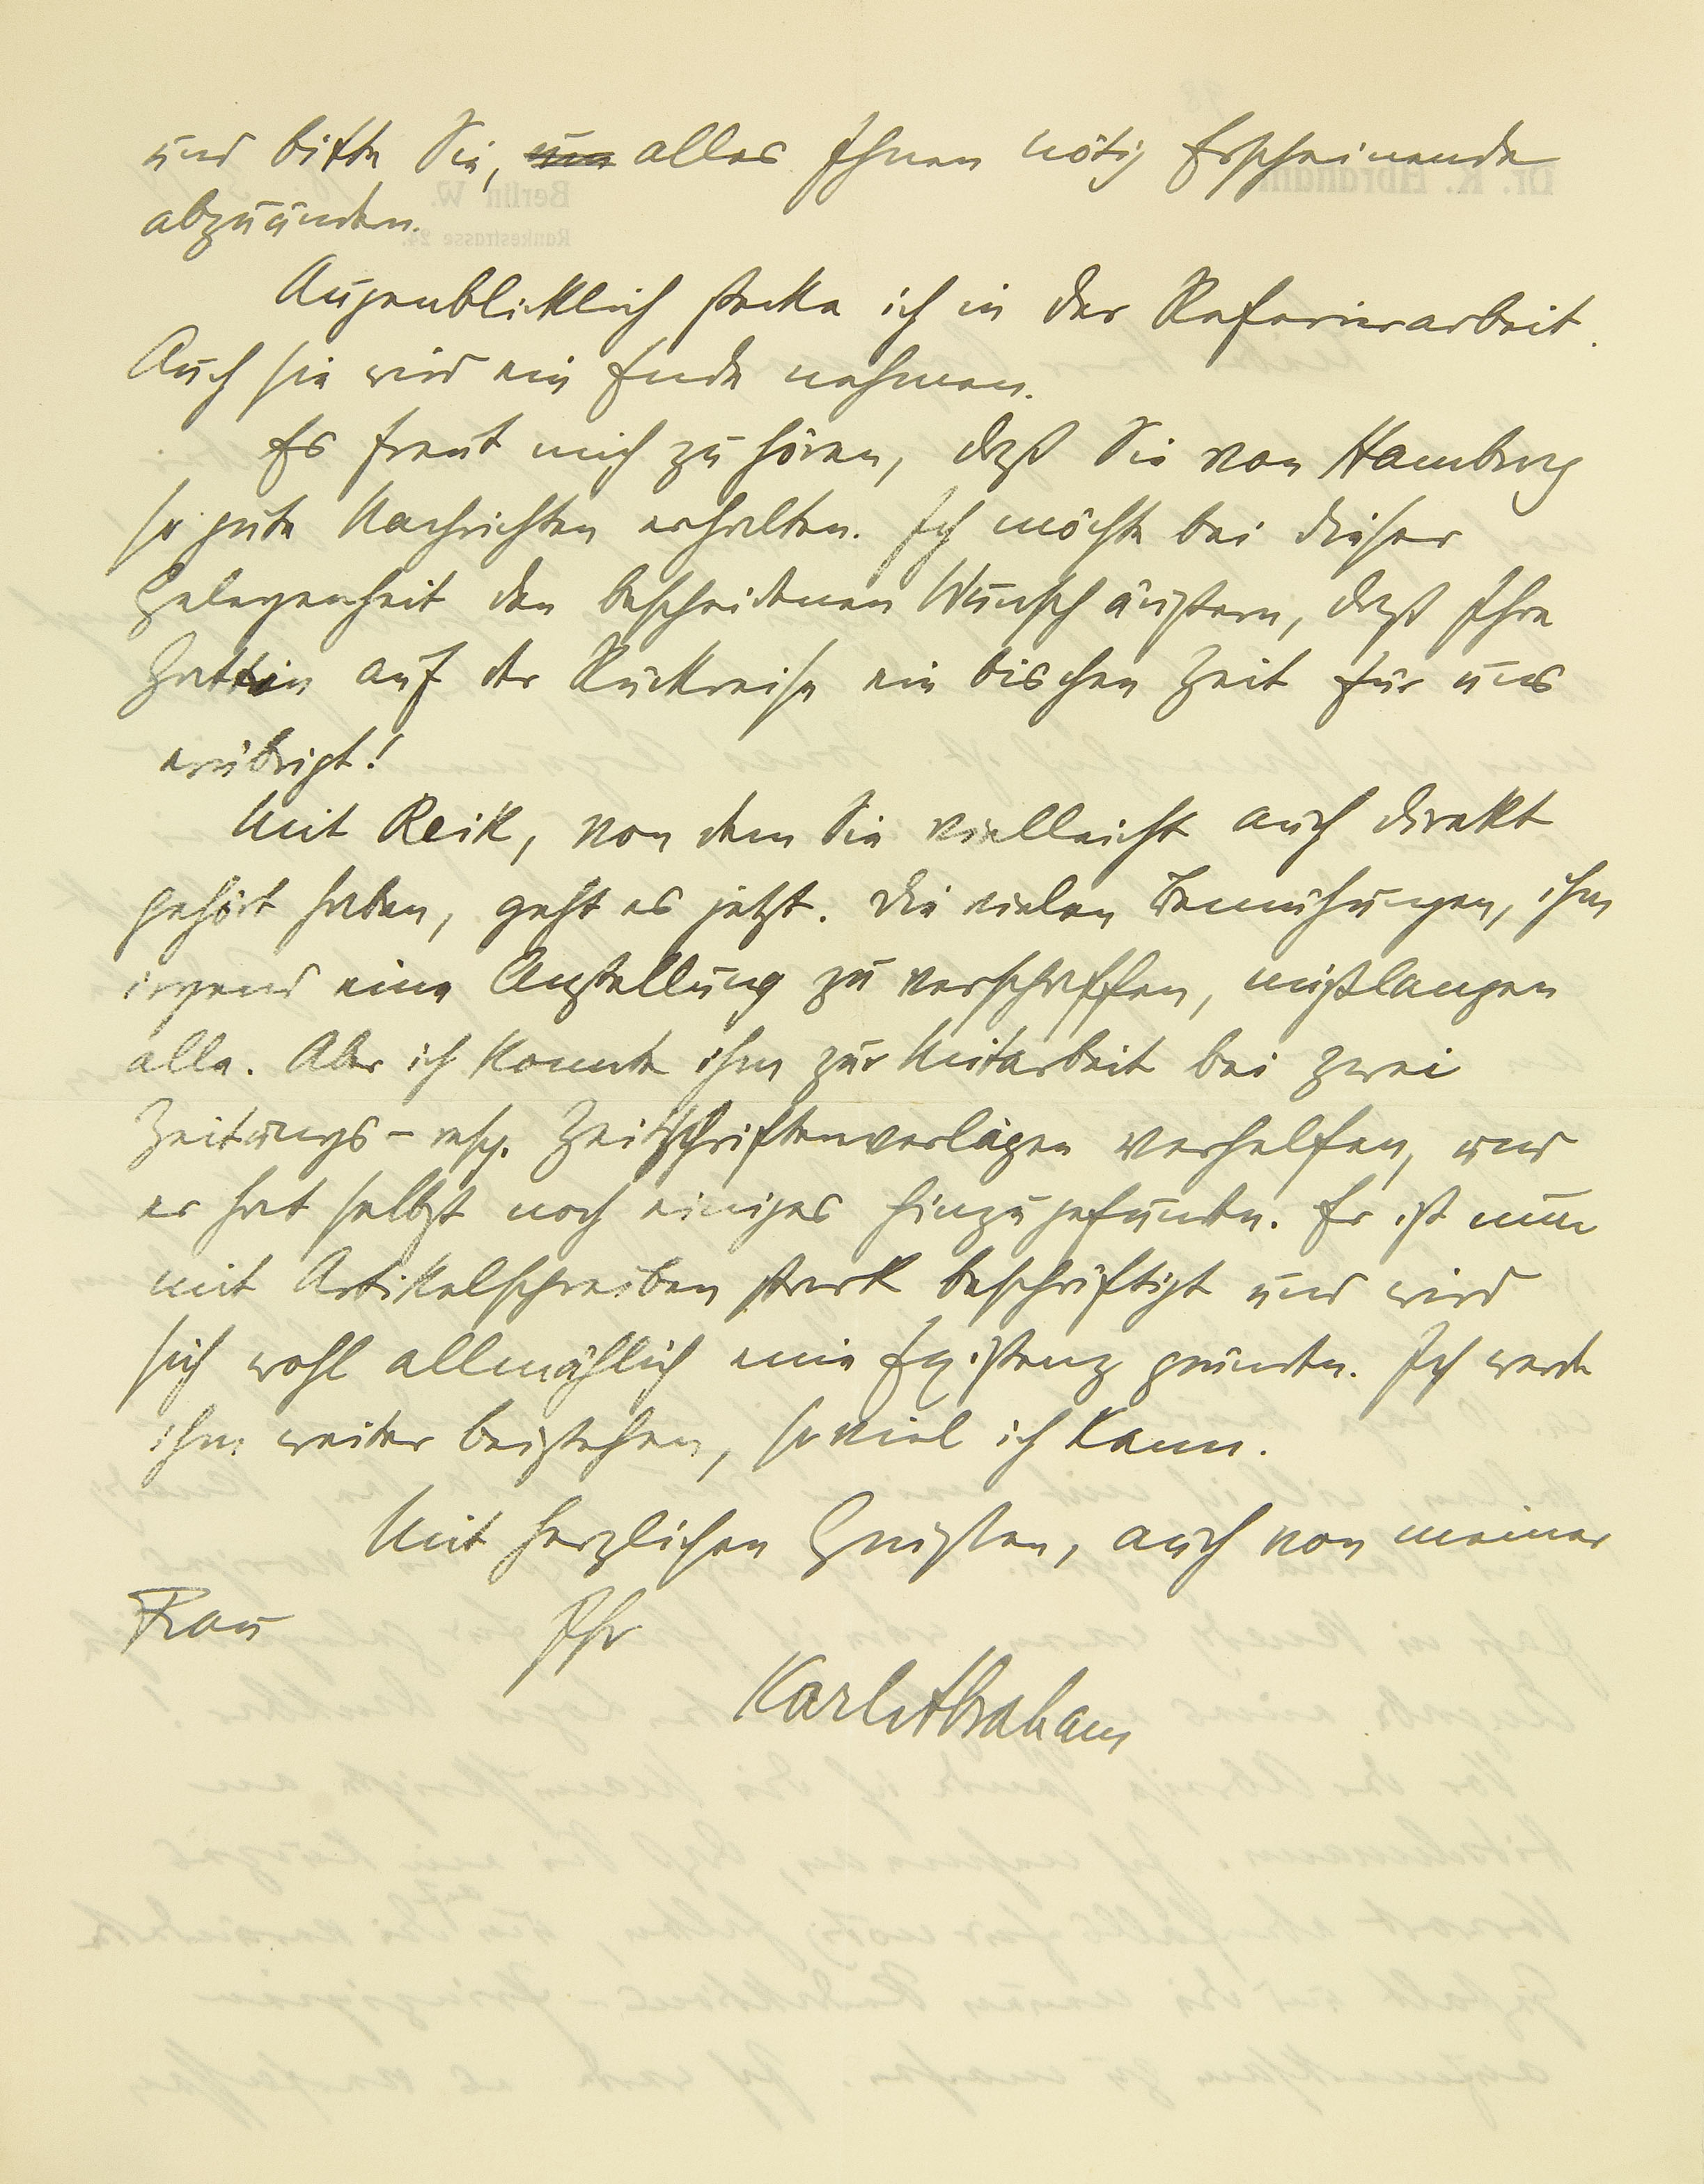 und bitte Sie, alles Ihnen nötig Erscheinende
abzuändern.
Augenblicklich stecke ich in der Referierarbeit.
Auch sie wird ein Ende nehmen.
Es freut mich zu hören, daß Sie von Hamburg
so gute Nachrichten erhalten. Ich möchte bei dieser
Gelegenheit den bescheidenen Wunsch äußern, daß Ihre
Gattin auf der Rückreise ein bischen Zeit für uns
erübrigt!
Mit Reik, von dem Sie vielleicht auch direkt
gehört haben, geht es jetzt. Die vielen Bemühungen, ihm
irgend eine Anstellung zu verschaffen, mißlangen
alle. Aber ich konnte ihm zur Mitarbeit bei zwei
Zeitungs- resp. Zeitschriftenverlägen verhelfen, und
er hat selbst noch einiges hinzugefunden. Er ist nun
mit Artikelschreiben stark beschäftigt und wird
sich wohl allmählich eine Existenz gründen. Ich werde
ihm weiter beistehen, soviel ich kann.
Mit herzlichen Grüßen, auch von meiner
Frau Ihr
Karl Abraham
Dr. K. Abraham
Berlin W.
Rankestrasse 24.